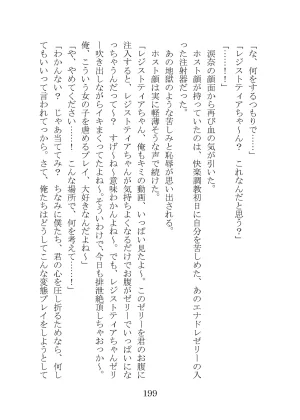 「な、何をするつもりで……」
「レジストティアちゃ～ん？　これなんだと思う？」
「……！！」
　涙奈の顔面から再び血の気が引いた。
　ホスト顔が持っていたのは、快楽調教初日に自分を苦しめた、あのエナドレゼリーの入
った注射器だった。
　あの地獄のような苦しみと恥辱が思い出される。
　ホスト顔は実に軽薄そうな声で続けた。
「レジストティアちゃん、俺もキミの動画、いっぱい見たよ～。このゼリーを君のお腹に
注入すると、レジストティアちゃんが気持ちよくなるだけでお腹がゼリーでいっぱいにな
っちゃうんだって～？　すげ～ね～意味わかんんよね～。でも、レジストティアちゃんゼリ
ー吹き出しながらイキまくってたよね～。そういうわけで、今日も排泄絶頂しちゃおっか～。
俺、こういう女の子を虐めるプレイ、大好きなんだよね～」
「や、やめてください……！　こんな場所で、何を考えて……！」
「わかんない？　じゃあ当ててみ？　ちなみに僕たち、君の心を圧し折るためなら、何し
てもいいって言われてっから。さて、俺たちはどうしてこんな変態プレイをしようとして
199